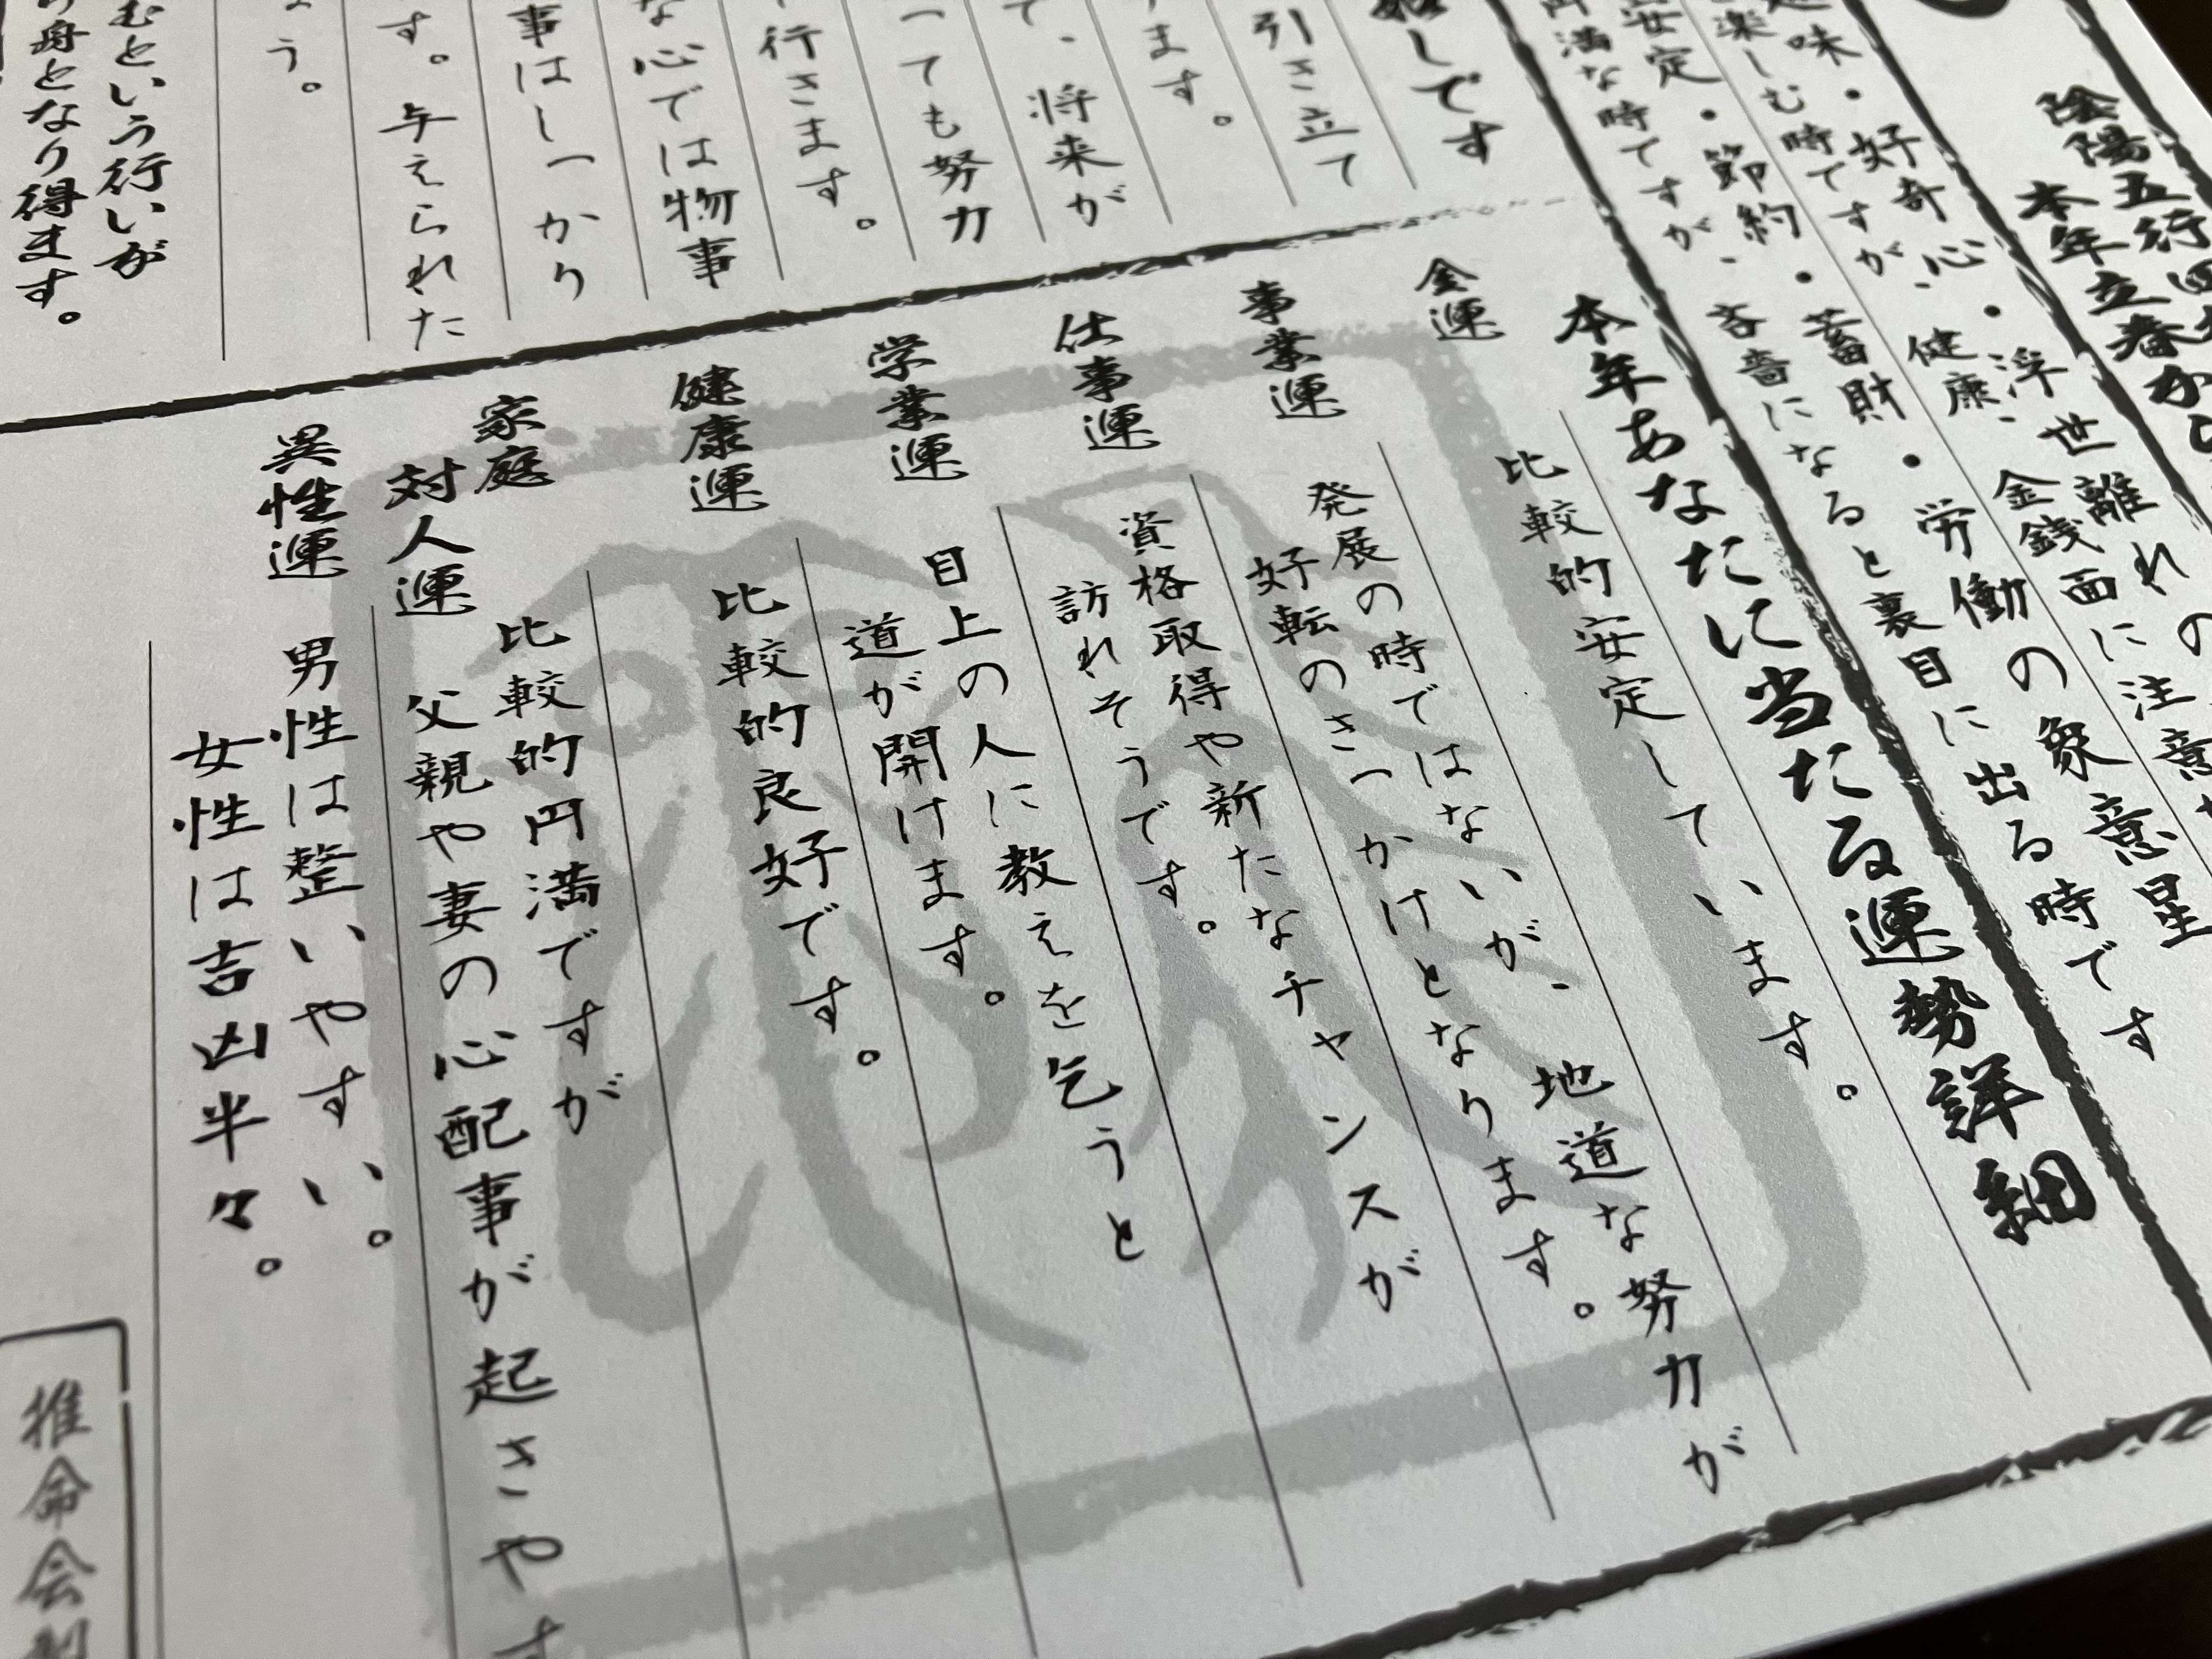 陰陽五行四
本年立春から
離れの
浮世
趣味・好奇心・
楽しむ時ですが、健康、金銭面に注意
安定・節約・蓄財・労働の象意星
円満な時ですが、吝嗇になると裏目に出る時です
しです
引き立て
ます。
て、将来が
っても努力
行きます。
な心では物事
事はしっかり
す。与えられた
う。
むという行いが
り身となり得ます。
本年あなたに当たる運勢詳細
金運
比較的安定しています。
事業運
発展の時ではないが、地道な努力が
好転のきっかけとなります。
仕事運
資格取得や新たなチャンスが
訪れそうです。
学業運
目上の人に教えを乞うと
道が開けます。
健康運
比較的良好です。
家庭
対人運
比較的円満ですが
父親や妻の心配事が起きやす
異性運
男性は整いやすい。
女性は吉凶半々。
推命会